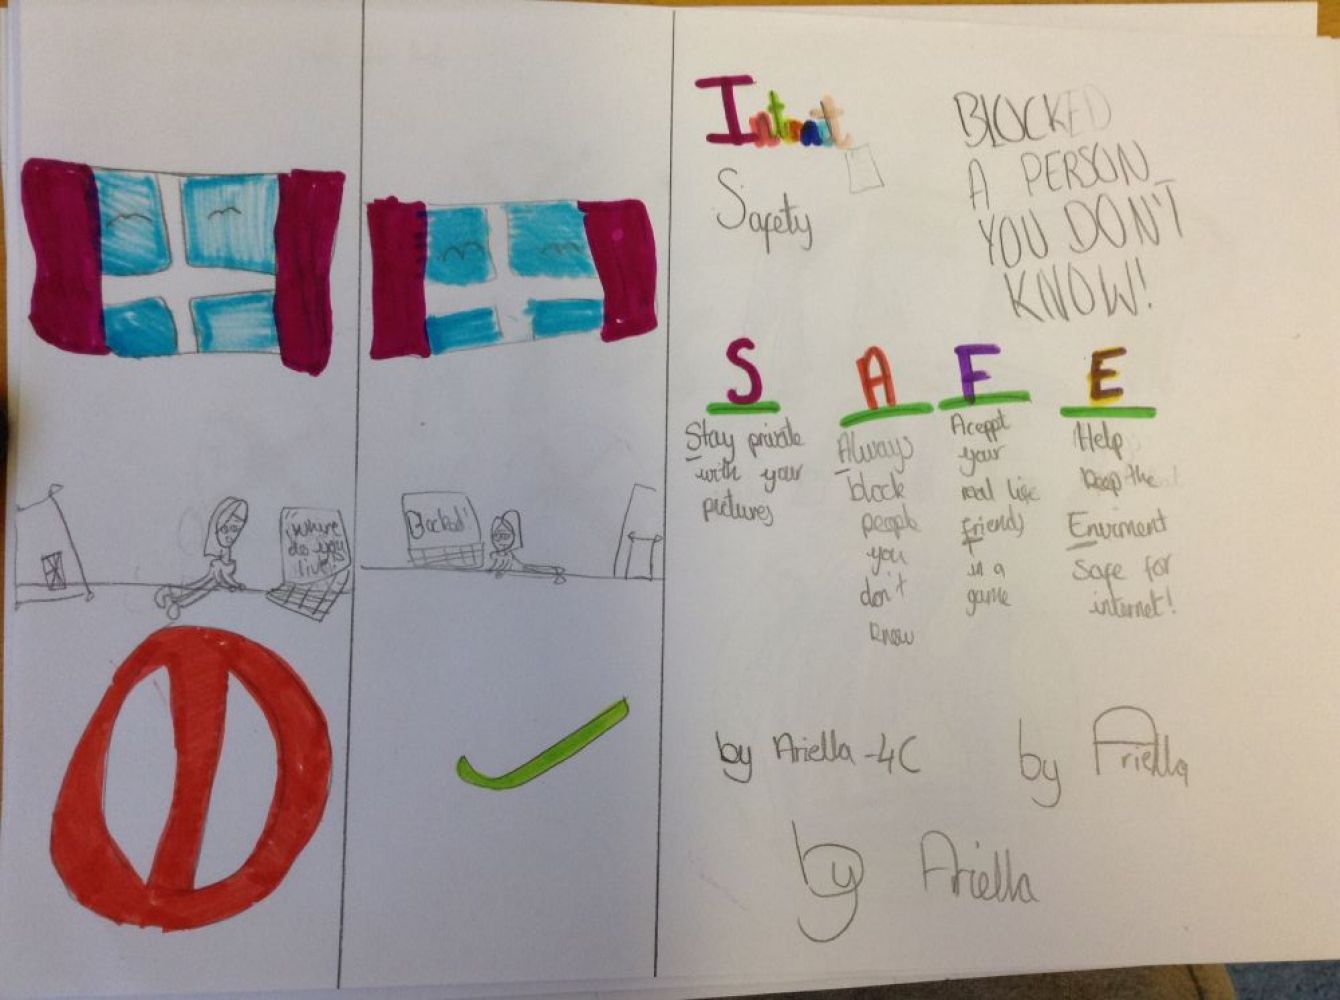 Internet
Safety
BLOCKED
A PERSON
YOU DON'T
KNOW!
S
Stay private
with your
pictures
A
Always
block
people
you
don't
know
F
Aceppt
your
real life
friends
in a
game
E
Help
keep the
Enviroment
Safe for
internet!
where
do you
live?
Blocked!
by Ariella -4C
by Ariella
by Ariella